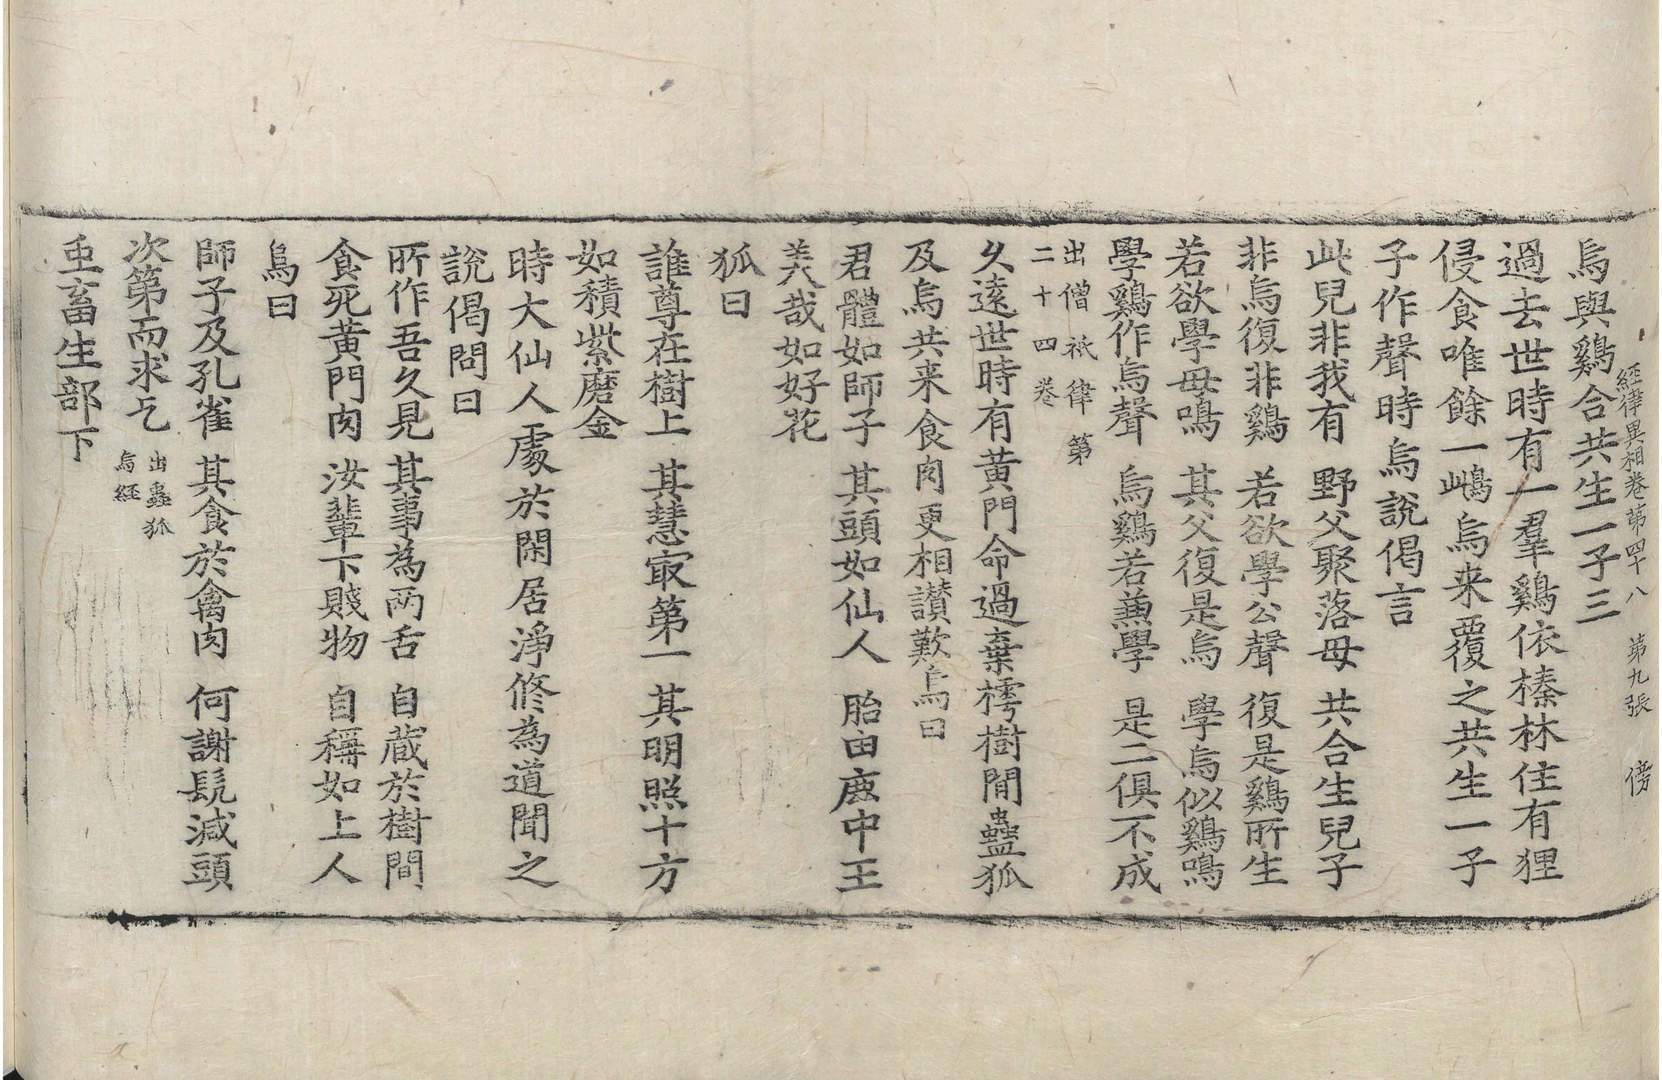 經律異相卷第四十八 第九張 傍
烏與鷄合共生一子三
過去世時有一羣鷄依榛林住有狸
侵食唯餘一鴟烏来覆之共生一子
子作聲時烏說偈言
此兒非我有 野父聚落母 共合生兒子
非烏復非鷄 若欲學公聲 復是鷄所生
若欲學母鳴 其父復是烏 學烏似鷄鳴
學鷄作烏聲 烏鷄若兼學 是二俱不成
出僧祇律第
二十四卷
久遠世時有黄門命過棄樗樹間蠱狐
及烏共来食肉更相讃歎烏曰
君體如師子 其頭如仙人 胎由鹿中王
羙哉如好花
狐曰
誰尊在樹上 其慧㝡第一 其明照十方
如積紫磨金
時大仙人處於閑居淨修為道聞之
說偈問曰
所作吾久見 其事為两舌 自蔵於樹間
食死黄門肉 汝輩下賤物 自稱如上人
烏曰
師子及孔雀 其食於禽肉 何謝髡減頭
次第而求乞 出蠱狐
烏經
䖝畜生部下